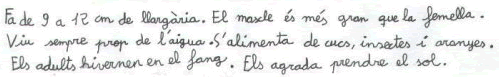 Fa de 9 a 12 cm de llargària. El mascle és més gran que la femella.
Viu sempre prop de l'aigua. S'alimenta de cucs, insectes i aranyes.
Els adults hivernen en el fang. Els agrada prendre el sol.